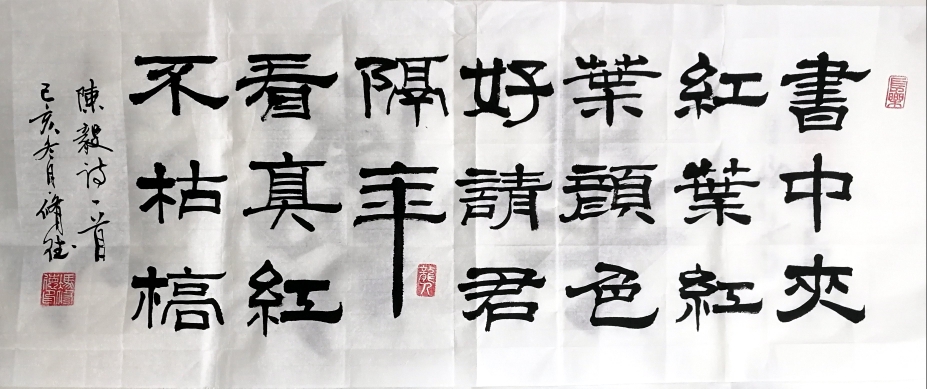 書中夾
紅葉紅
葉顏色
好請君
隔年
看真紅
不枯槁
陳毅诗一首
己亥冬月脩德
龍人